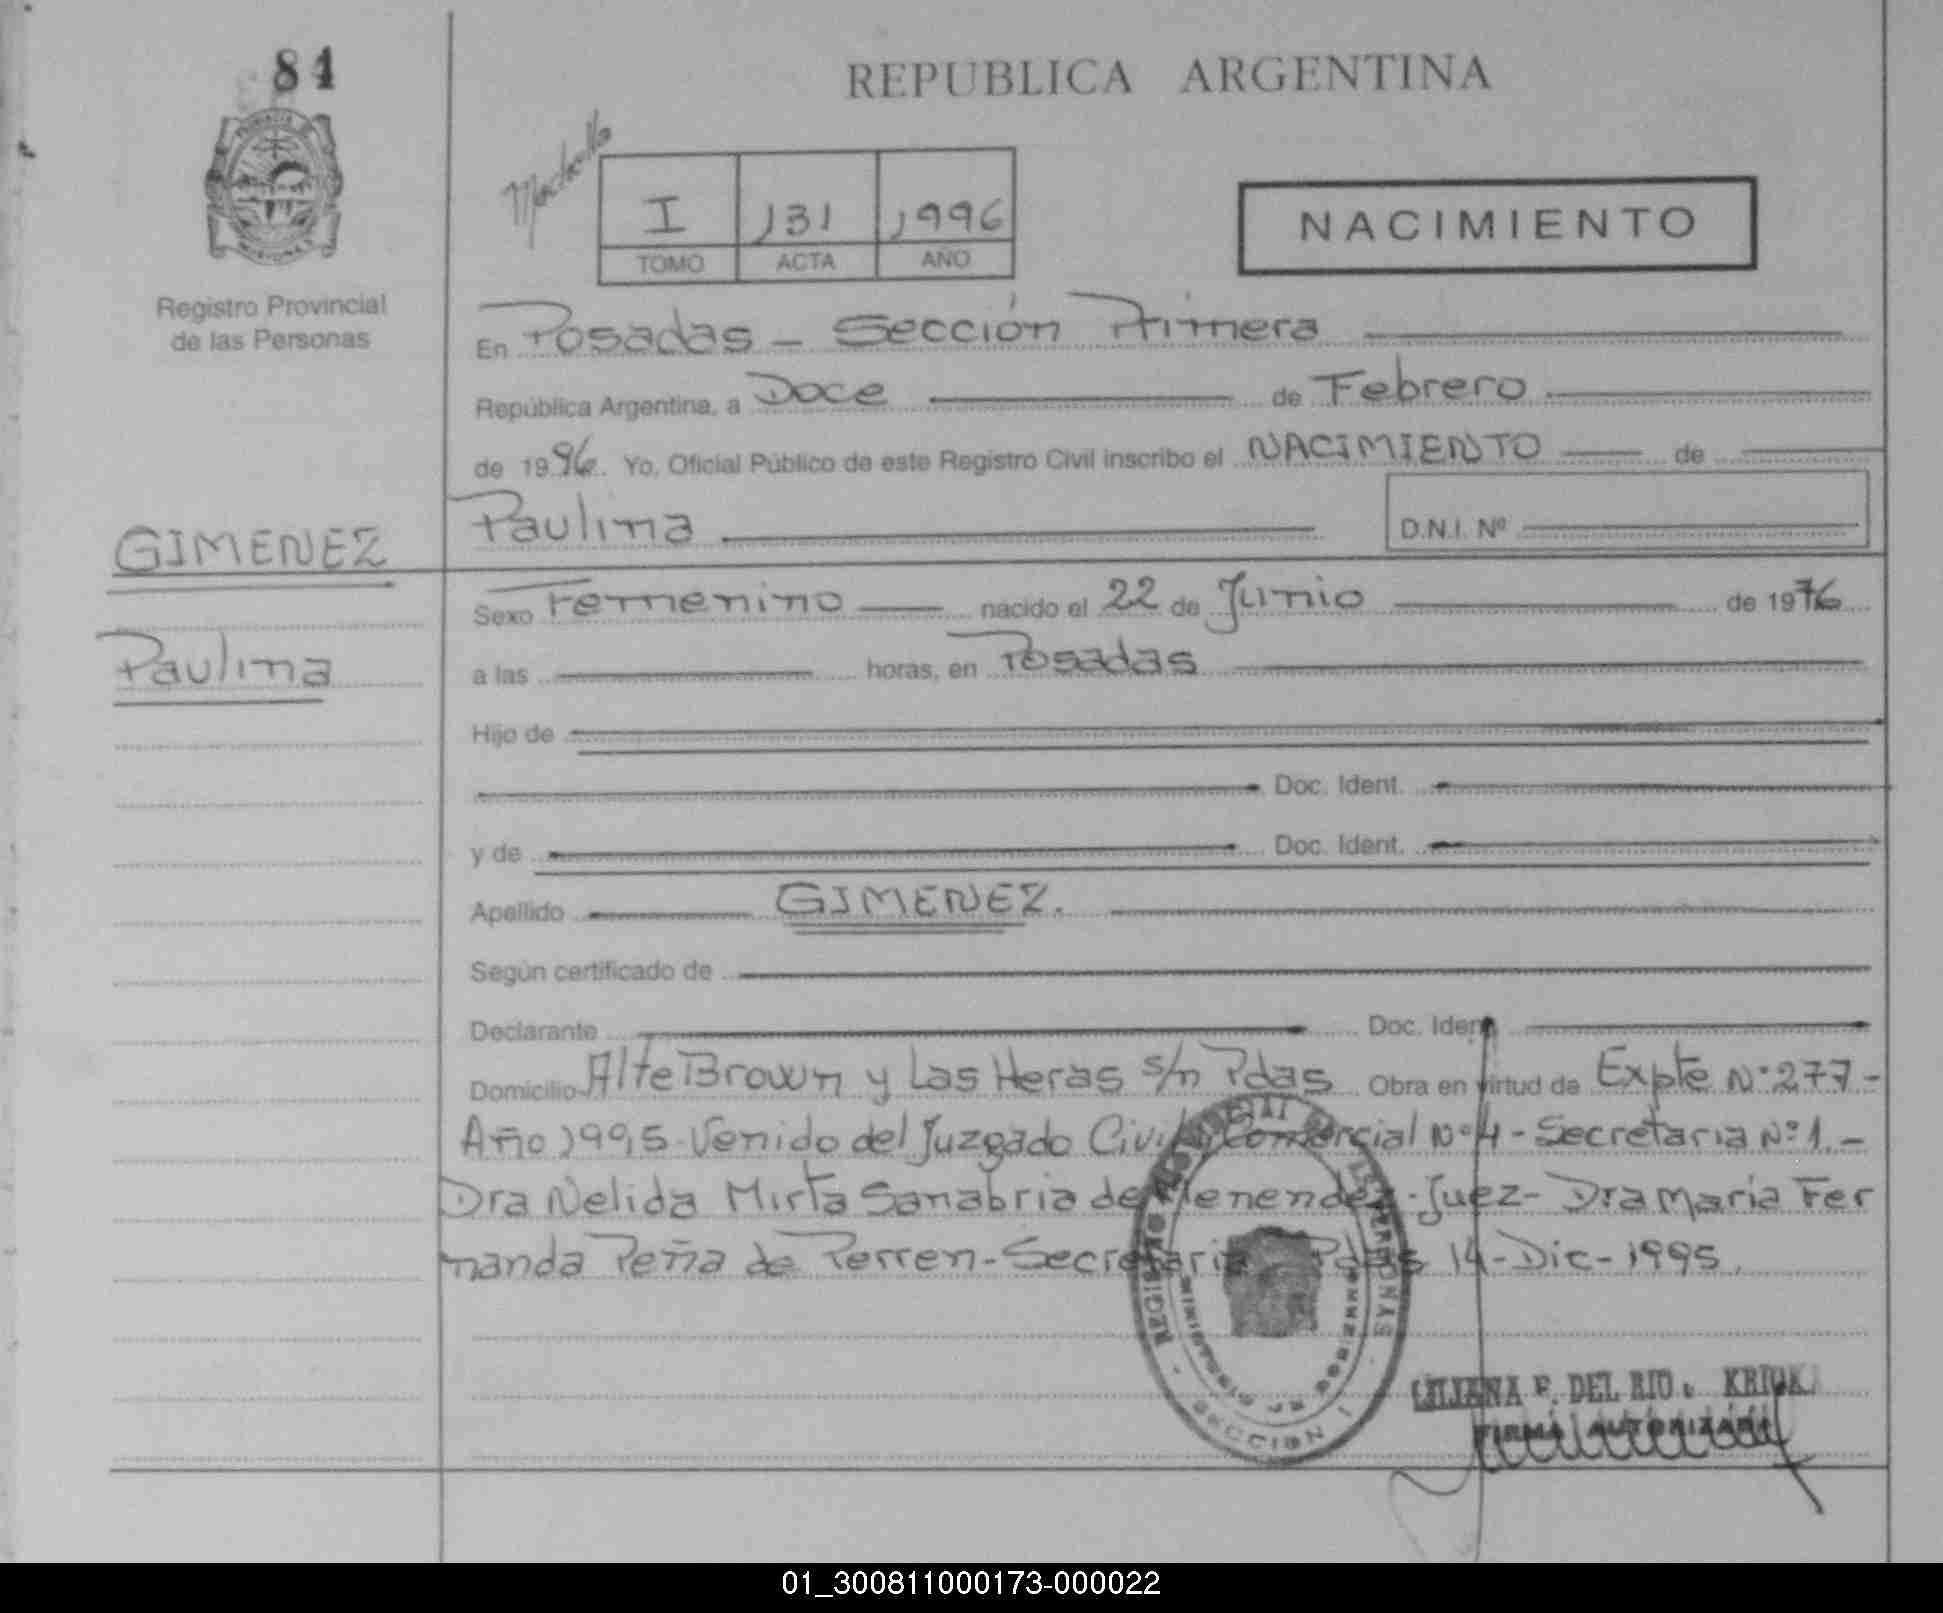 81
REPUBLICA ARGENTINA
I 131 1996
TOMO ACTA AÑO
NACIMIENTO
Registro Provincial
de las Personas
En Posadas - Sección Primera
República Argentina, a Doce de Febrero
de 1996. Yo, Oficial Público de este Registro Civil inscribo el NACIMIENTO de
Paulina D.N.I. Nº
GIMENEZ
Paulina
Sexo Femenino nacido el 22 de Junio de 1976
a las horas, en Posadas
Hijo de
Doc. Ident.
y de Doc. Ident.
Apellido GIMENEZ.
Según certificado de
Declarante Doc. Ident.
Domicilio Alte Brown y Las Heras s/n Pdas Obra en virtud de Expte Nº 277-
Año 1995-Venido del Juzgado Civil y Comercial Nº 4 - Secretaria Nº 1.-
Dra Nelida Mirta Sanabria de Menendez-Juez- Dra Maria Fer
nanda Peña de Perren-Secretaria Pdas 14-Dic-1995.
SECCION I
LILIANA F. DEL RIO
FIRMA AUTORIZADA
01_300811000173-000022